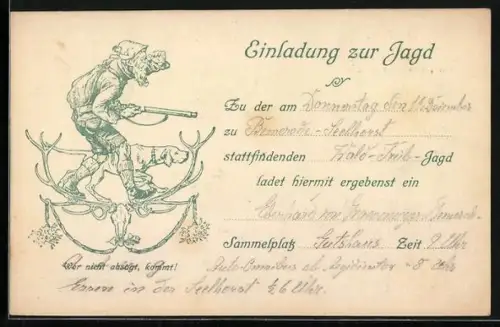 Einladung zur Jagd
Zu der am Donnerstag den 11. Dezember
zu Bemerode-Seelhorst
stattfindenden Wald-Treib-Jagd
ladet hiermit ergebenst ein
Eberhard von
Sammelplatz Gutshaus Zeit 9 Uhr
Wer nicht absagt, kommt!
Auto-Omnibus ab 8 Uhr
Essen in der Seelhorst ½6 Uhr.